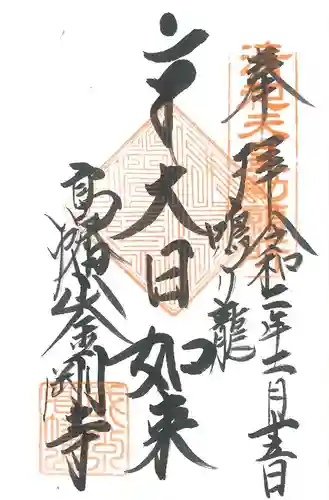 奉拝
令和二年二月廿五日
鳴り龍
大日如来
高幡山金剛寺